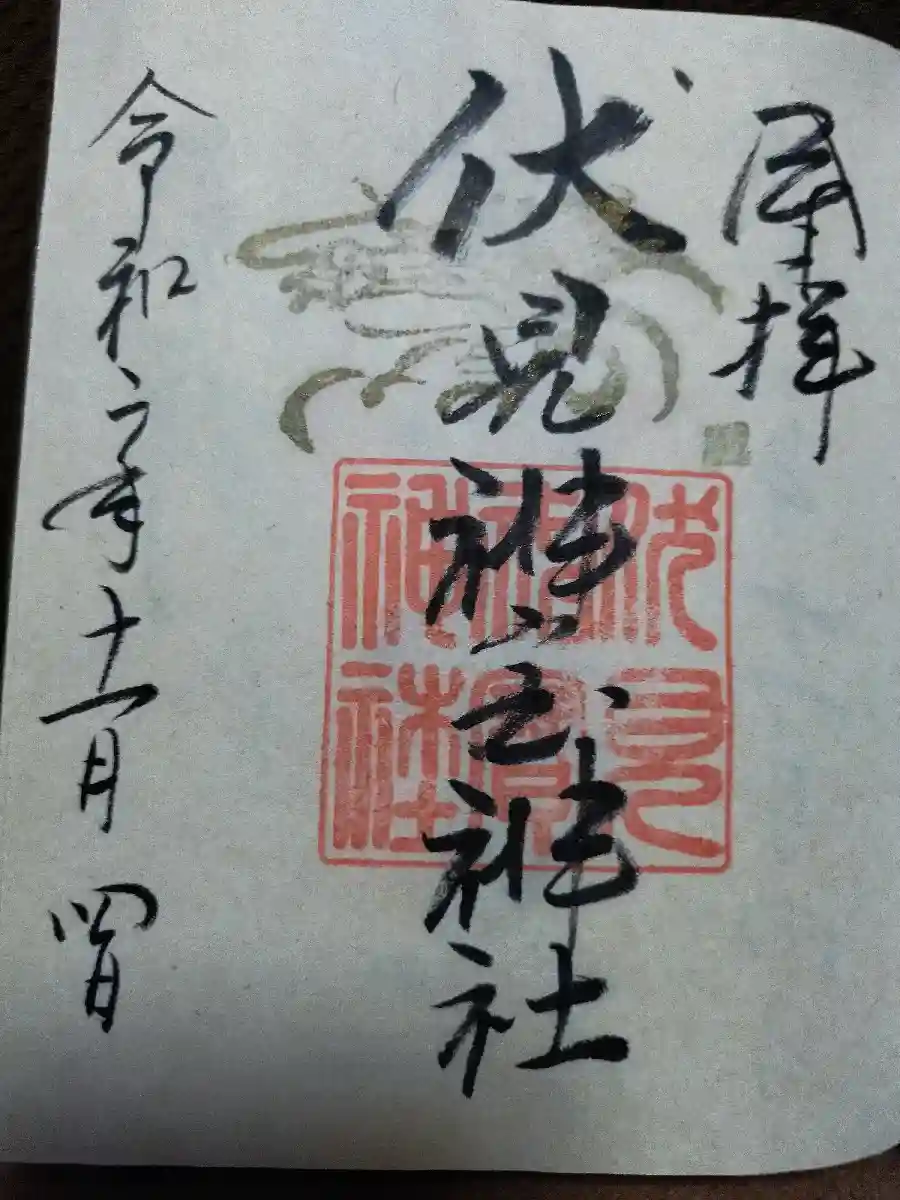 拝
伏見神宝神社
令和二年十一月四日
伏見
神寳
神社